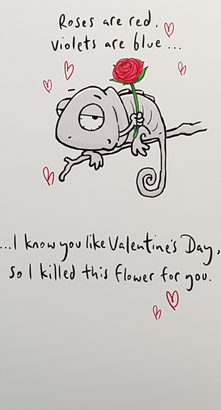 Roses are red,
Violets are blue...
...I know you like Valentine's Day,
so I killed this flower for you.